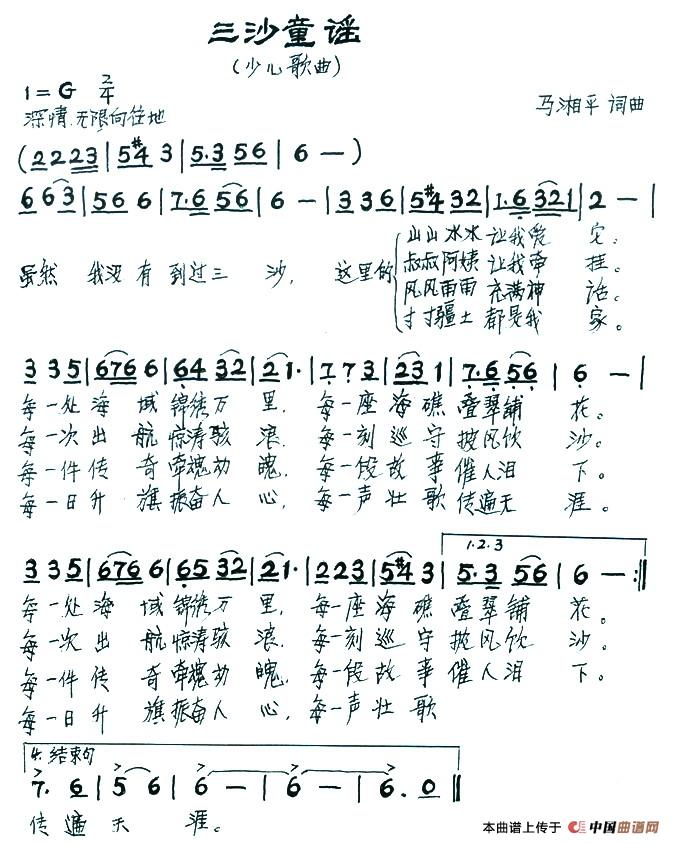 三沙童谣
(少儿歌曲)
1=G 2/4
马湘平 词曲
深情、无限向往地
(2 2 2 3 | 5 #4 3 | 5·3 5 6 | 6 — )
6 6 3 | 5 6 6 | 7·6 5 6 | 6 — | 3 3 6 | 5 #4 3 2 | 1·6 3 2 1 | 2 — |
虽然 我没有到过三 沙, 这里的
山山水水让我爱 它。
叔叔阿姨让我牵 挂。
风风雨雨充满神 话。
寸寸疆土都是我 家。
3 3 5 | 6 7 6 6 | 6 4 3 2 | 2 1· | 7 7 3 | 2 3 1 | 7·6 5 5 | 6 — |
每一处海 域锦绣万 里, 每一座海礁叠翠铺 花。
每一次出 航惊涛骇 浪, 每一刻巡守披风饮 沙。
每一件传 奇牵魂动 魄, 每一段故事催人泪 下。
每一日升 旗振奋人 心, 每一声壮歌传遍天 涯。
1.2.3
3 3 5 | 6 7 6 6 | 6 5 3 2 | 2 1· | 2 2 3 | 5 #4 3 | 5·3 5 6 | 6 — :‖
每一处海 域锦绣万 里, 每一座海礁叠翠铺 花。
每一次出 航惊涛骇 浪, 每一刻巡守披风饮 沙。
每一件传 奇牵魂动 魄, 每一段故事催人泪 下。
每一日升 旗振奋人 心, 每一声壮歌
4. 结束句
7· 6 | 5 6 | 6 — | 6 — | 6·0 ‖
传遍天 涯。
本曲谱上传于 中国曲谱网